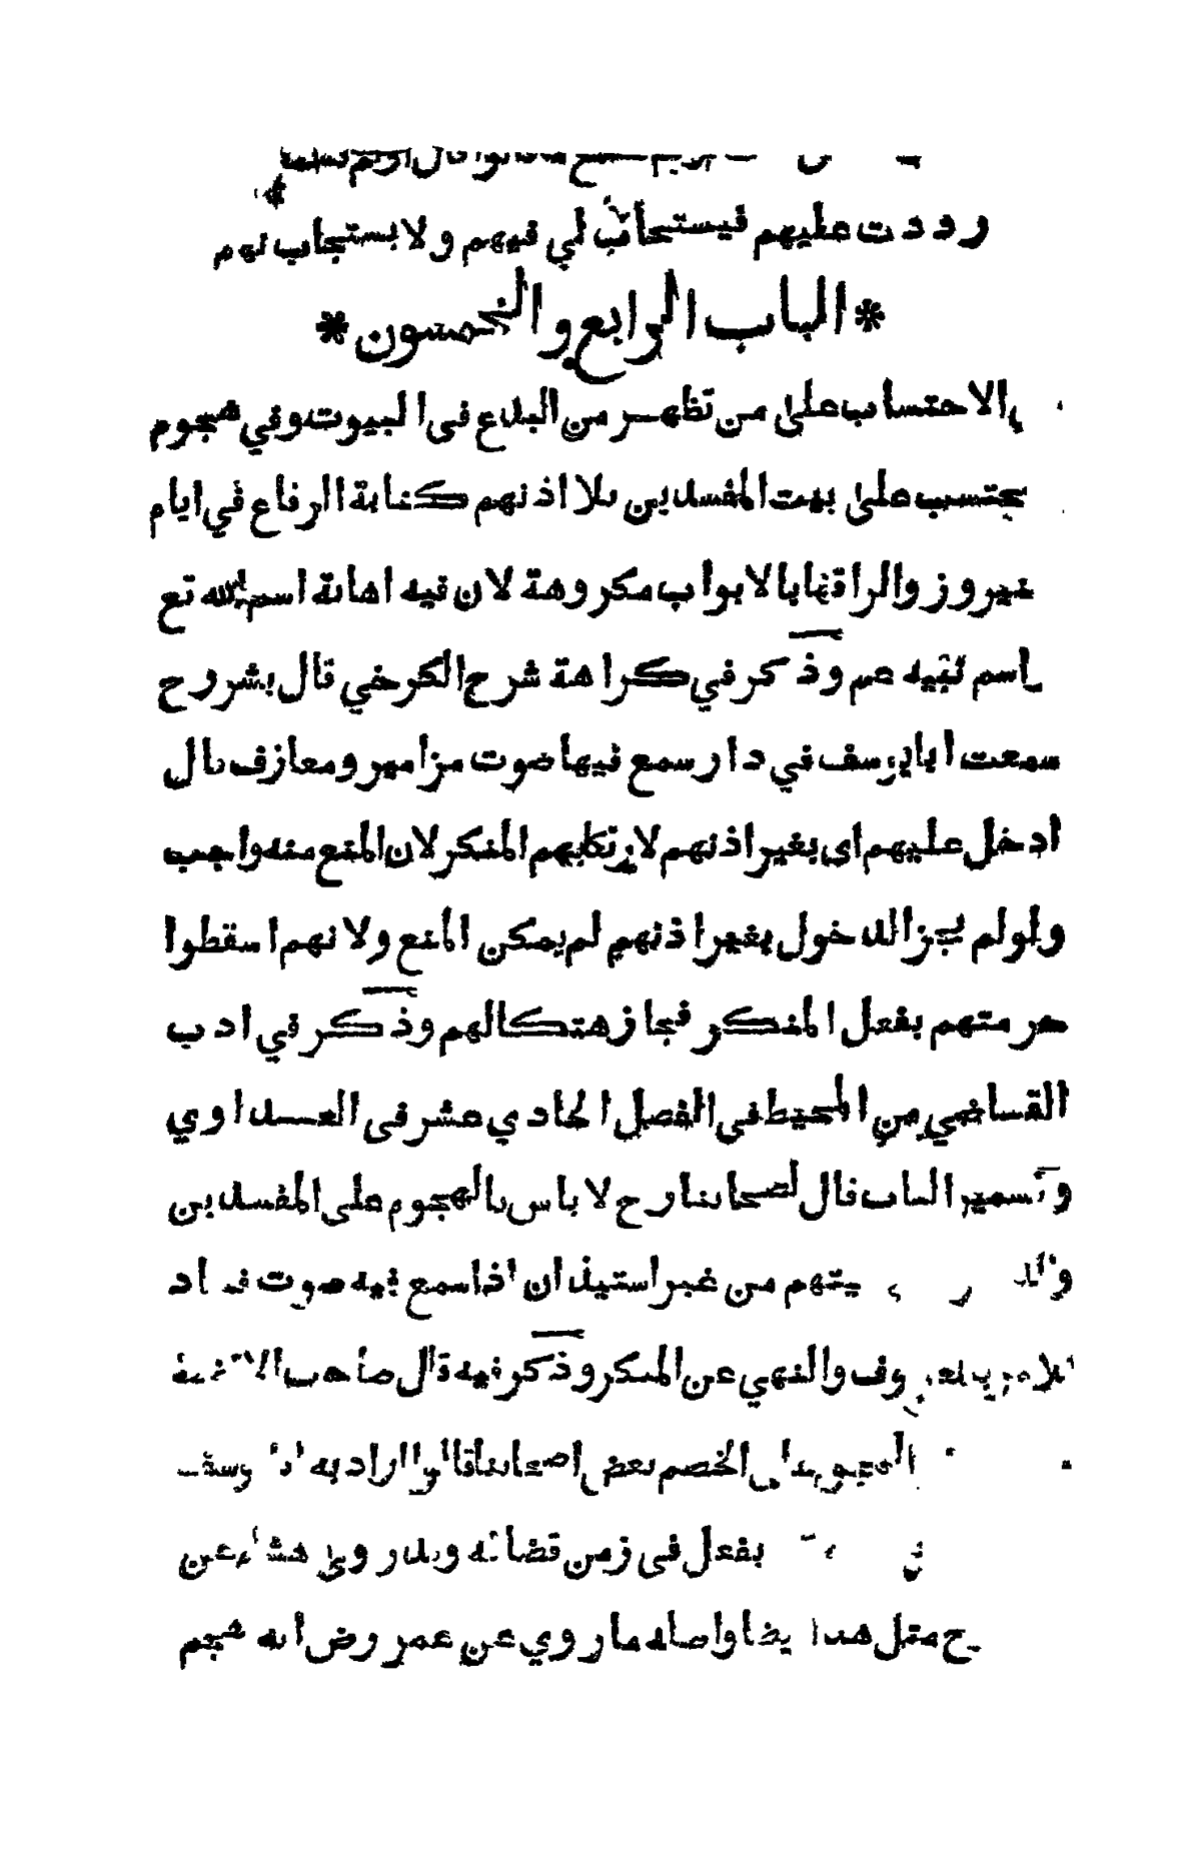 رددت عليهم فيستجاب لي فيهم ولا يستجاب لهم
* الباب الرابع والخمسون *
الاحتساب على من تظهر من البدع في البيوت وفي هجوم
محتسب على بيت المفسدين بلا اذنهم كتابة الرقاع في ايام
نيروز والزاقها بالابواب مكروهة لان فيه اهانة اسم الله تع
اسم نبيه عم وذكر في كراهة شرح الكرخي قال بشر رح
سمعت ابا يوسف في دار سمع فيها صوت مزامير ومعازف قال
ادخل عليهم اي بغير اذنهم لارتكابهم المنكر لان المنع منه واجب
ولو لم يجز الدخول بغير اذنهم لم يمكن المنع ولانهم اسقطوا
حرمتهم بفعل المنكر فجاز هتكا لهم وذكر في ادب
القاضي من المحيط في الفصل الحادي عشر في العدوي
وتسمير الباب قال اصحابنا رح لا باس بالهجوم على المفسدين
يتهم من غير استيذان اذا سمع فيه صوت فساد
وف والنهي عن المنكر وذكر فيه قال صاحب الاقضية
الهجوم على الخصم بعض اصحابنا قالوا اراد به ابا يوسف
يفعل في زمن قضائه وقد روى هشام عن
مثل هذا ايضا واصله ما روي عن عمر رض انه هجم